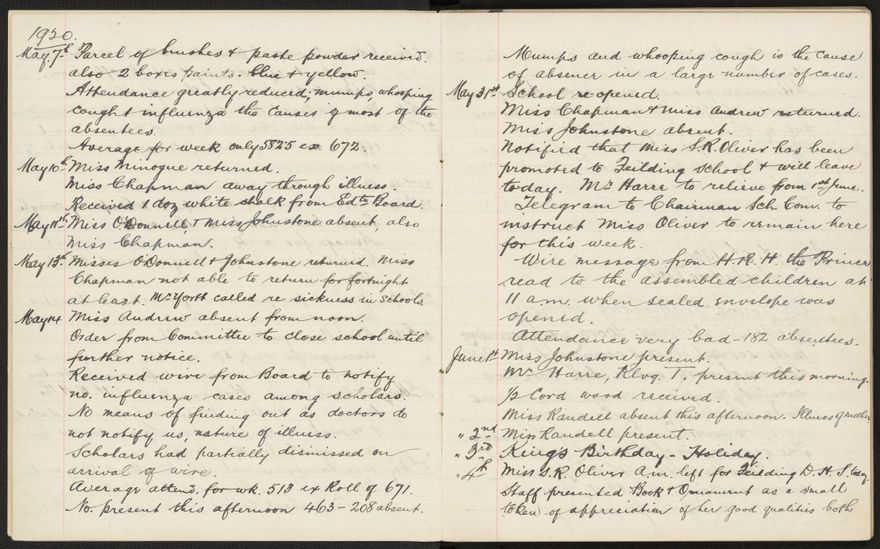 1920.
May. 7th Parcel of brushes & paste powder received.
also 2 boxes paints. blue & yellow.
Attendance greatly reduced; mumps, whooping
cought influenza the causes of most of the
absentees.
Average for week only 582.5 ex 672
May 10th Miss Minogue returned.
Miss Chapman away through illness.
Received 1 doz white chalk from Edtn Board
May 11th Miss O'Donnell, & Miss Johnstone absent, also
Miss Chapman.
May 13th Misses O'Donnell & Johnstone returned. Miss
Chapman not able to return for fortnight
at least. Mr Yorth called re sickness in schools
May 14 Miss Andrew absent from noon.
Order from Committee to close school until
further notice.
Received wire from Board to notify
no. influenza cases among scholars.
No means of finding out as doctors do
not notify us, nature of illness.
Scholars had partially dismissed on
arrival of wire.
Average attend. for wk. 513 ex Roll of 671.
No. present this afternoon 463 - 208 absent.
Mumps and whooping cough is the cause
of absence in a large number of cases.
May 31st School re-opened.
Miss Chapman & Miss Andrew returned.
Miss Johnstone absent.
Notified that Miss S.R. Oliver has been
promoted to Feilding School & will leave
today. Mr Harre to relieve from 1st June.
Telegram to Chairman Sch. Com. to
instruct Miss Oliver to remain here
for this week.
Wire message from H.R.H. the Prince
read to the assembled children at
11 a.m. when sealed envelope was
opened.
Attendance very bad - 182 absentees.
June 1st Miss Johnstone present.
Mr Harre, Rlvg. T. present this morning.
½ Cord wood received.
Miss Randell absent this afternoon. Illness of mother.
" 2nd Miss Randell present.
" 3rd King's Birthday - Holiday.
" 4th Miss S.R. Oliver A.M. left for Feilding D.H.S. today.
Staff presented Book & Ornament as a small
token of appreciation of her good qualities both